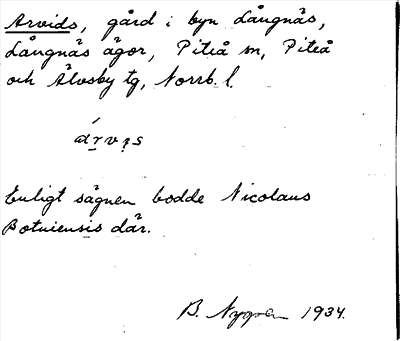 Arvids, gård i byn Långnäs,
Långnäs ägor, Piteå sn, Piteå
och Älvsby tg, Norrb. l.
árvis
Enligt sägnen bodde Nicolaus
Botniensis där.
B. Nygren 1934.